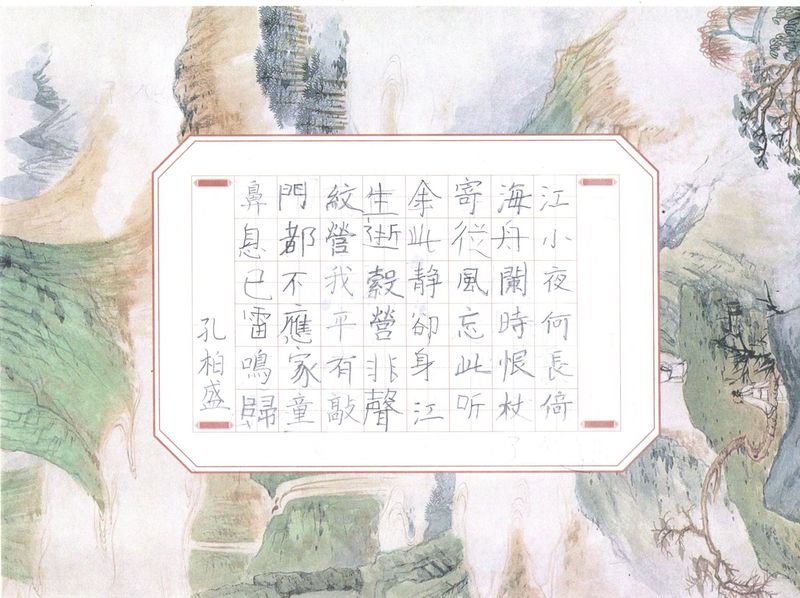 江小夜何長倚
海舟闌時恨杖
寄從風忘此听
余此静卻身江
生逝縠營非聲
紋營我平有敲
門都不應家童
鼻息已雷鳴歸
孔柏盛